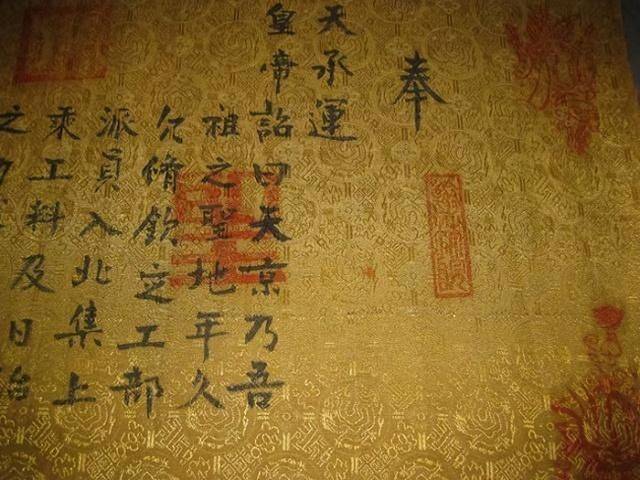 奉
天承運
皇帝詔曰天京乃吾
祖之聖地年久
允脩欽定工部
派員入北集上
乘工料及日
之